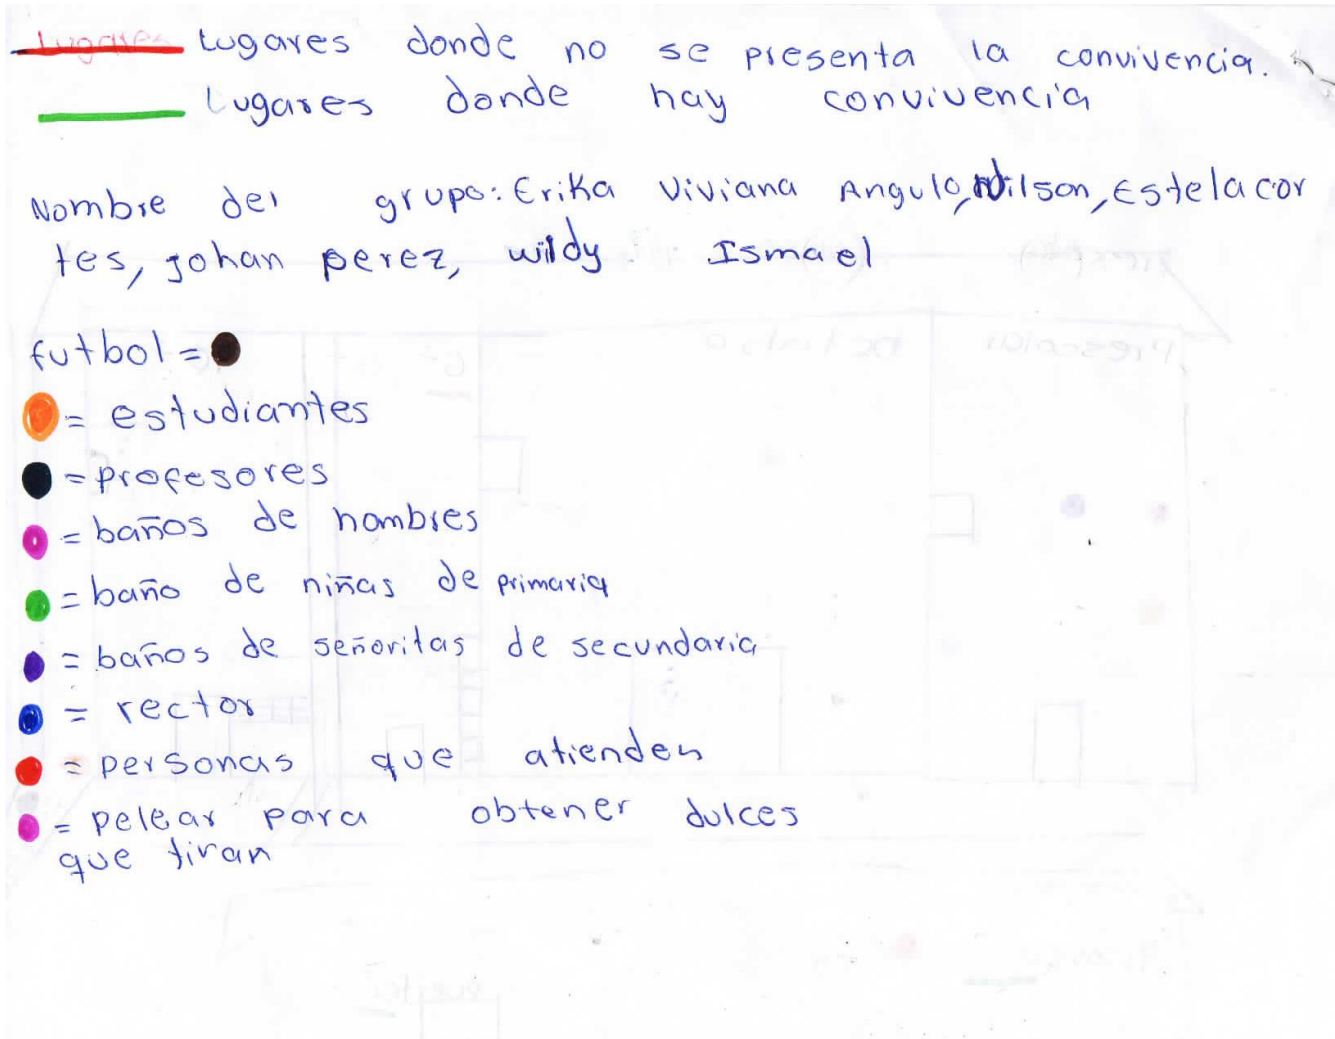 Lugares Lugares donde no se presenta la convivencia.
Lugares donde hay convivencia
Nombre del grupo: Erika Viviana Angulo, Wilson, Estela cor
tes, Johan perez, wildy Ismael
futbol =
= estudiantes
= profesores
= baños de hombres
= baño de niñas de primaria
= baños de señoritas de secundaria
= rector
= personas que atienden
= pelear para obtener dulces
que tiran